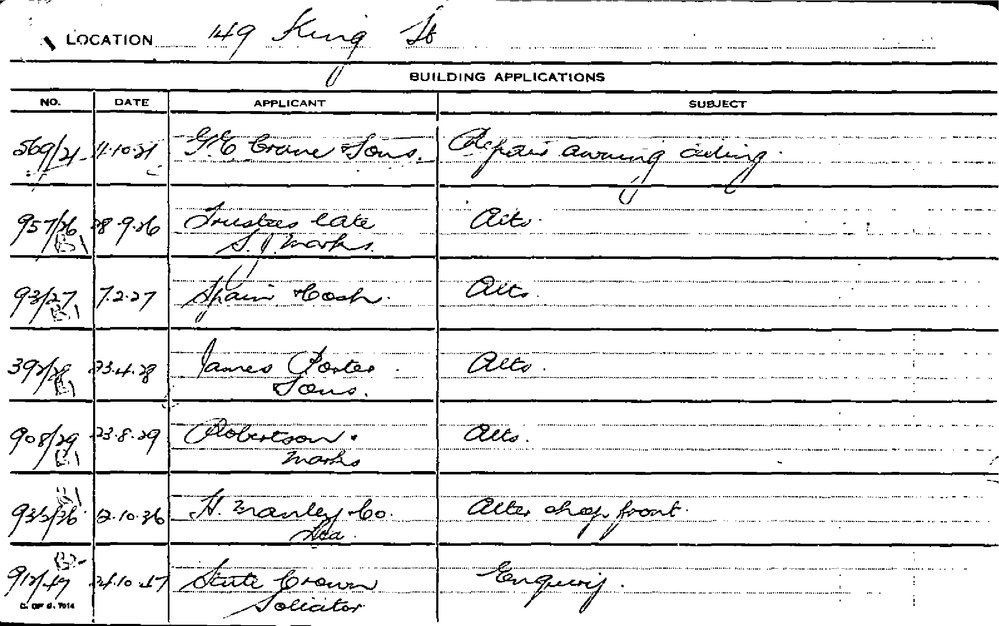 LOCATION 149 King St
BUILDING APPLICATIONS
NO. DATE APPLICANT SUBJECT
569/21 11.10.21 G E Crane & Sons. Repair awning ceiling.
957/26 28.9.26 Trustees late Alts.
S. J. Marks.
93/27 7.2.27 Spain & Cosh. Alts.
392/28 23.4.28 James Porter Alts.
& Sons.
908/29 23.8.29 Robertson & Alts.
Marks
935/36 12.10.36 H. Manley & Co. Alter shop front.
Ltd.
912/47 24.10.47 State Crown Enquiry.
Solicitor
C. OF S. 7014